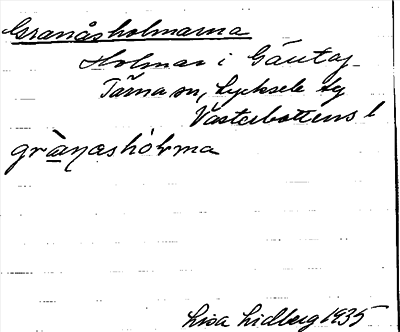 Granåsholmarna
Holmar i Gäutaj.
Tärna sn, Lycksele lg
Västerbottens l
grànæshólma
Lisa Lidberg 1935